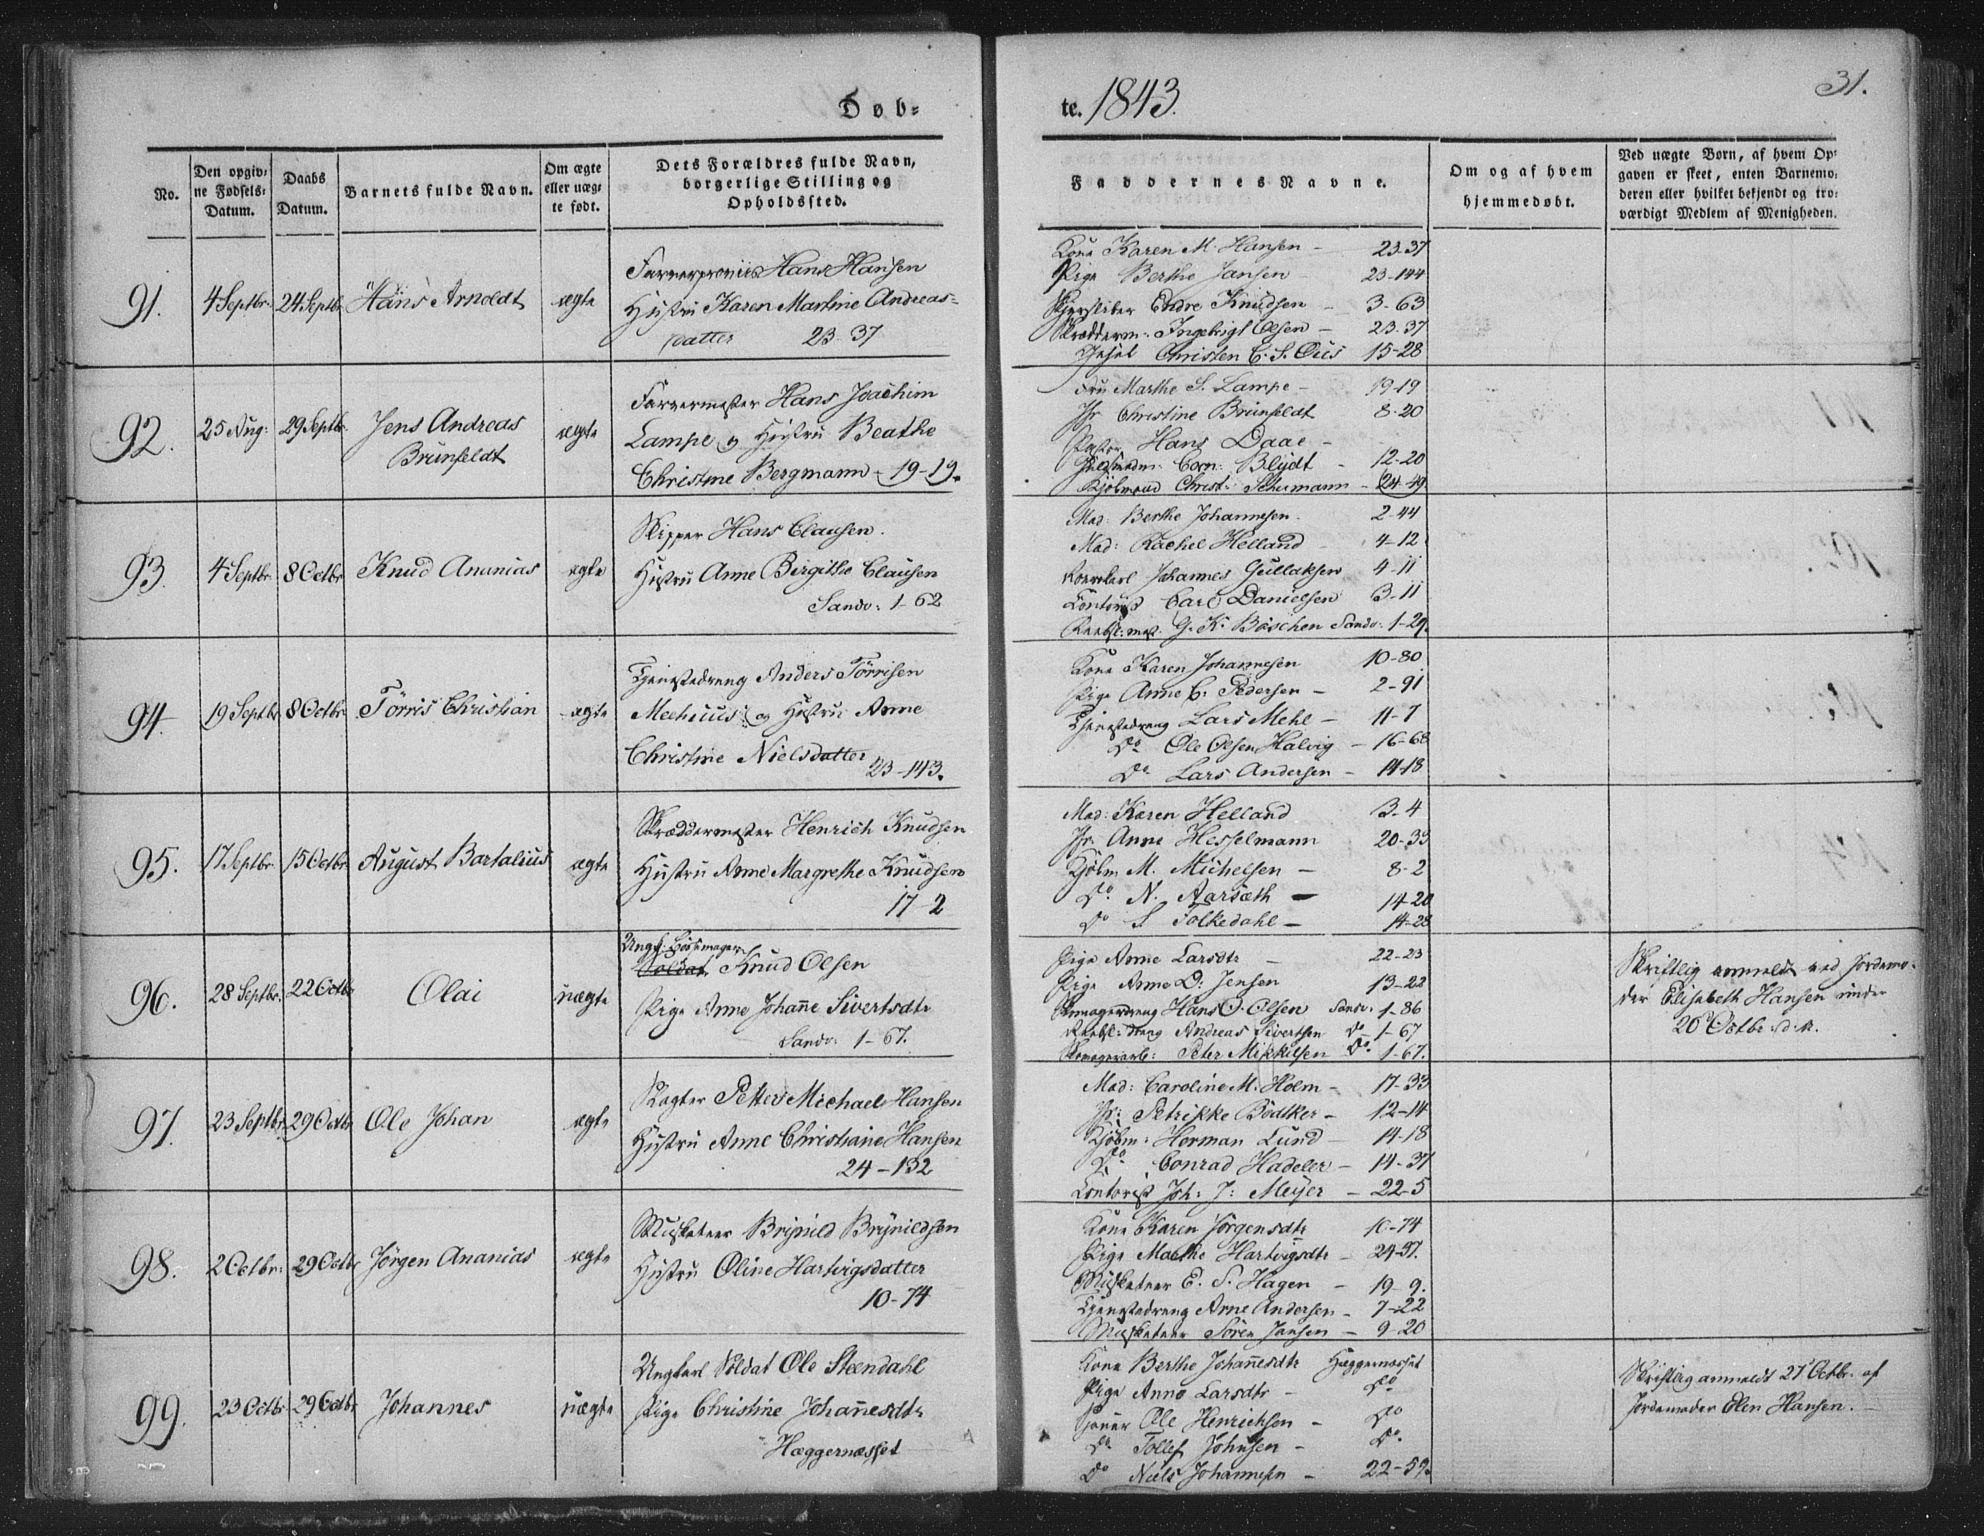 Døb=
te. 1843.
31.
No.
Den opgiv=
ne Fødsels=
Datum.
Daabs
Datum.
Barnets fulde Navn.
Om ægte
eller uæg=
te født.
Dets Forældres fulde Navn,
borgerlige Stilling og
Opholdssted.
Faddernes Navne.
Om og af hvem
hjemmedøbt.
Ved uægte Børn, af hvem Op=
gaven er skeet, enten Barnemo=
deren eller hvilket bekjendt og tro=
værdigt Medlem af Menigheden.
91.
4 Septbr.
24 Septbr
Hans Arnoldt
ægte
Hans Hansen
Hustru Karen Martine Andreas=
datter 23-37
Kone Karen M. Hansen - 23-37
Pige Berthe Jansen 23-144
Endre Knudsen - 3-63
Skrædderm: Ingebrigt Olsen - 23-37
Christen C. S. 15-28
92.
25 Aug:
29 Septbr.
Jens Andreas
Brunfeldt
ægte
Farvermester Hans Joachim
Lampe og Hustru Beathe
Christine Bergmann - 19-19.
Fru Marthe S. Lampe - 19-19
Jfr. Christine Brunfeldt 8-20
Pastor Hans Daae -
Corn: Blydt - 12-20
Kjøbmand Christ: Schumann - 24-49
93.
4 Septbr
8 Octbr
Knud Ananias
ægte
Skipper Hans Clausen.
Hustru Anne Birgithe Clausen
Sandv: 1-62
Mad: Berthe Johannesen. 2-44
Mad: Rachel Helland - 4-12
Johannes Gullaksen 4-11
Contorist Carl Danielsen 3-11
G. K. Böschen Sandv: 1-29.
94.
19 Septbr
8 Octbr
Törris Christian
ægte
Tjenestedreng Anders Törrisen
og Hustru Anne
Christine Nielsdatter
23-143.
Kone Karen Johannesen 10-80
Pige Anne C. Pedersen - 2-91
Tjenestedreng Lars Mehl - 11-7
Do Ole Olsen Halvig - 16-68
Do Lars Andersen - 14-18
95.
17 Septbr.
15 Octbr
August Bartalius
ægte
Skræddermester Henrich Knudsen
Hustru Anne Margrethe Knudsen
17-2
Mad: Karen Helland 3-4
Jfr. Anne Hesselmann 20-33
Kjøbm M. Michelsen - 8-2
Do. N. Aarsæth - 14-20
Do S. Folkedahl - 14-28
96.
28 Septbr.
22 Octbr
Olai
uægte
Ungk: Bössemager
Soldat Knud Olsen
Pige Anne Johanne Sivertsdtr
Sandv: 1-67.
Pige Anne Larsdtr - 22-23
Pige Anne D: Jensen 13-22
Hans O. Olsen Sandv. 1-86
Andreas Sivertsen Do 1-67
Peter Mikkelsen Do. 1-67.
Skriftlig anmeldt ved Jordemo=
der Elisabeth Hansen under
20 Octbr. d. A.
97.
23 Septbr.
29 Octbr
Ole Johan
ægte
Vægter Petter Michael Hansen
Hustru Anne Christiane Hansen
24-132
Mad: Caroline M. Holm - 17-33
Jfr: Petrikke Bödtker - 12-14
Kjøbm: Herman Lund 14-18
Do Conrad Hadeler - 14-37
Contorist Joh: J: Meyer - 22-5
98.
2 Octbr:
29 Octbr
Jörgen Ananias
ægte
Musketeer Brynild Brynildsen
Hustru Oline Hartvigsdatter
10-74
Kone Karen Jörgensdtr 10-74
Pige Marthe Hartvigsdtr - 24-97.
Musketeer E. S. Hagen - 19-9.
Tjenestedreng Arne Andersen - 7-22
Musketeer Sören Jansen - 9-20
99.
23 Octbr
29 Octbr
Johannes
uægte
Ungkarl Soldat Ole Steendahl
Pige Christine Johannesdtr
Hæggernæsset
Kone Berthe Johannesdtr Hæggernæsset
Pige Anne Larsdtr - Do
Ole Henrichsen - Do
Do Tollef Johnsen - Do.
Do Niels Johannesen - 22-59.
Skriftlig anmeldt 27 Octbr. af
Jordemoder Elen Hansen.